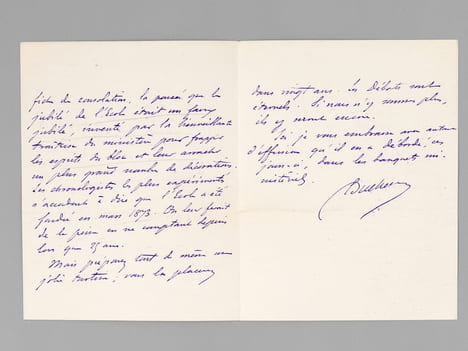 fiche de consolation, la pensée que le
jubilé de l'École était un faux
jubilé, inventé par la bienveillante
du ministère pour frapper
les esprits du bloc et leur arracher
un plus grand nombre de décorations.
Les chronologistes les plus expérimentés
s'accordent à dire que l'École a été
fondée en mars 1873. On leur ferait
de la peine en ne comptant depuis
lors que 25 ans.
Mais préparez tout de même une
jolie tartine; vous la placerez
dans vingt ans. Les Débats sont
éternels. Si nous n'y sommes plus,
ils y seront encore.
je vous embrasse avec autant
d'effusion qu'il en a débordé, ces
jours-ci, dans les banquets mi-
nistériels.